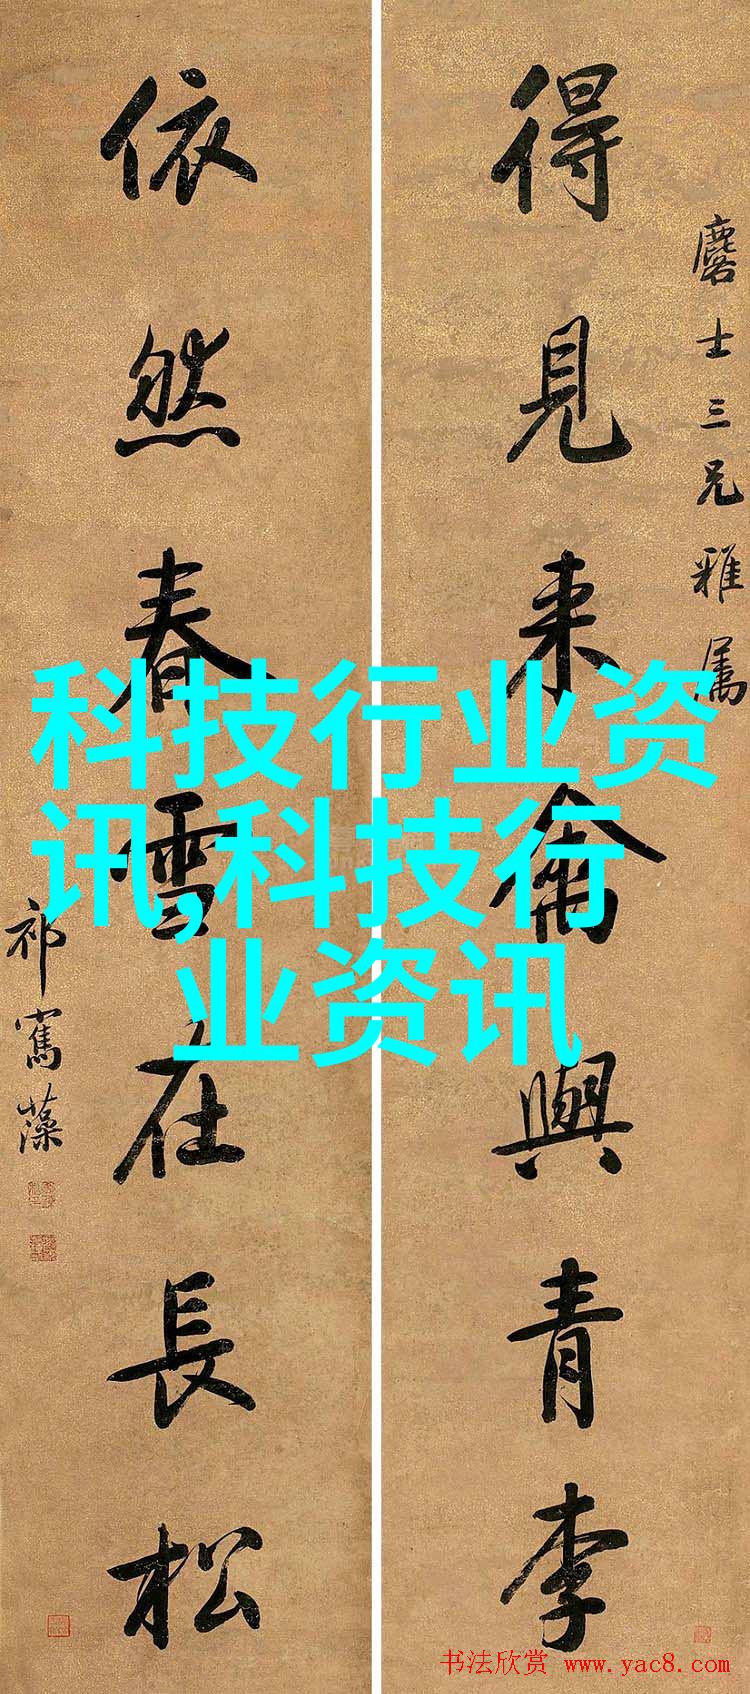 麐士三兄雅屬
得見来禽與青李
依然春雪在長松
祁寯藻
科技行业资
讯,科技行
业资讯
书法欣赏 www.yac8.com